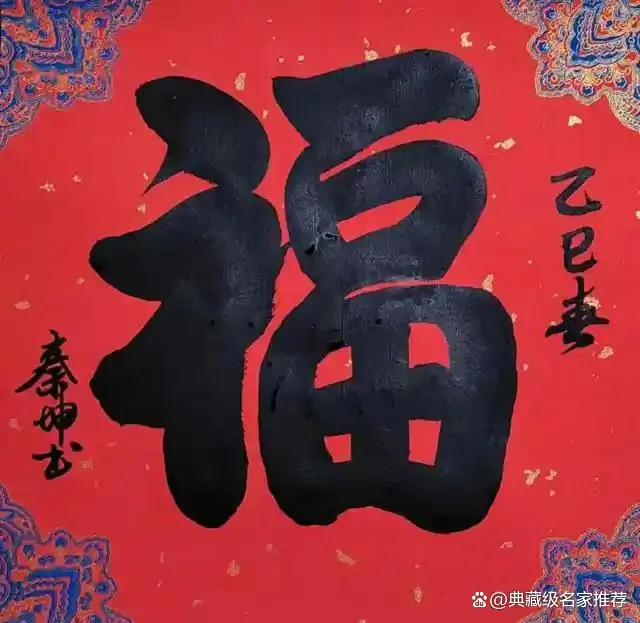 福
乙巳春
秦坤书
@典藏级名家推荐